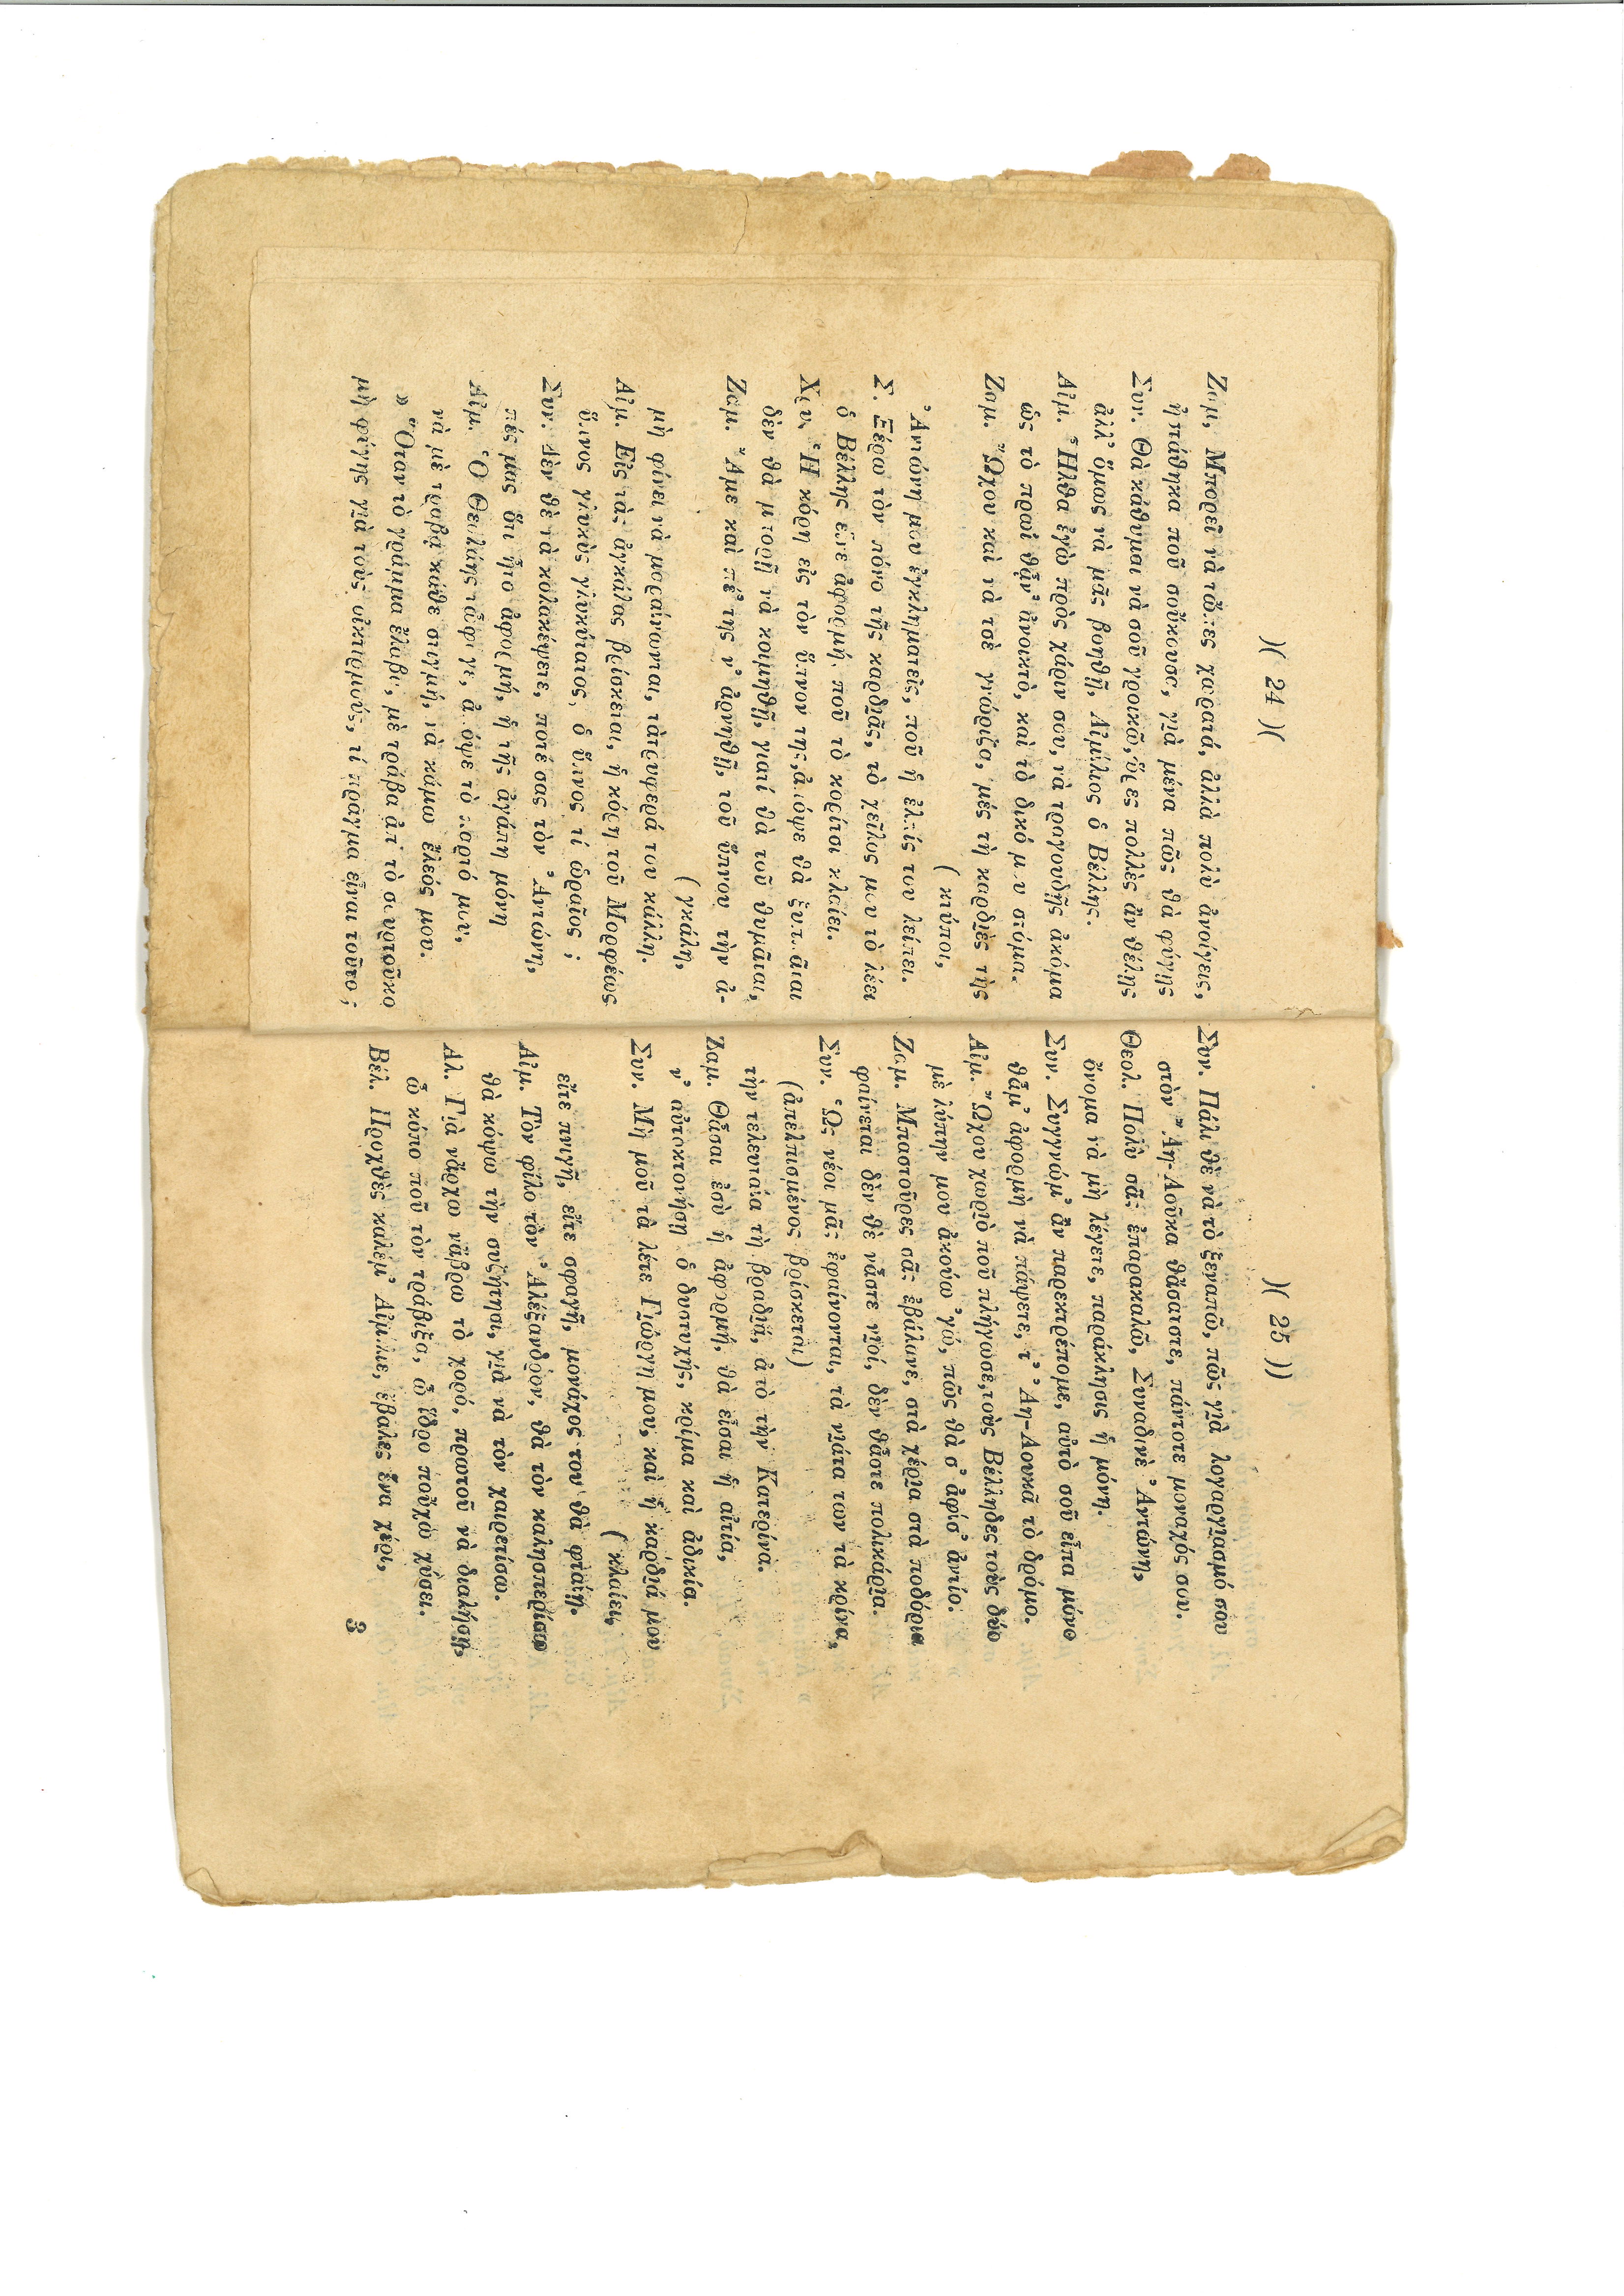 )( 24 )(
Ζαμ. Μπορεῖ νὰ τὦπες χαρατά, ἀλλὰ πολὺ ἀνοίγεις,
ἢ πάθηκα ποῦ σοὔκουσα, γιὰ μένα πῶς θὰ φύγῃς
Συν. Θὰ κάθωμαι νὰ σοῦ γροικῶ, ὅξες πολλὲς ἂν θέλῃς
ἀλλ' ὅμως νὰ μᾶς βοηθῇ, Αἰμίλιος ὁ Βέλλης.
Αἰμ. Ἦλθα ἐγὼ πρὸς χάριν σου, νὰ τραγουδῇς ἀκόμα
ὡς τὸ πρωὶ θἆν' ἀνοικτὸ, καὶ τὸ δικό μου στόμα.
Ζαμ. Ὤχου καὶ νὰ τσὲ γνώριζα, μὲς τὴ καρδιὲς τὴς
( κτύποι,
Ἀντώνη μου ἐγκληματεῖς, ποῦ ἡ ἐλπίς του λείπει.
Σ. Ξέρω τὸν πόνο τῆς καρδιᾶς, τὸ χεῖλος μου τὸ λέει
ὁ Βέλλης εἶνε ἀφορμή, ποῦ τὸ κορίτσι κλαίει.
Χρ. Ἡ κόρη εἰς τὸν ὕπνον της, ἀπόψε θὰ ξυπνᾶται
δὲν θὰ μπορῇ νὰ κοιμηθῇ, γιατί θὰ τοῦ θυμᾶται,
Ζαμ. Ἄμε καὶ πέ της ν' ἀρνηθῇ, τοῦ ὕπνου τὴν ἀ-
( γκάλη,
μὴ φίνει νὰ μαραίνονται, τὰτρυφερά του κάλλη.
Αἰμ. Εἰς τὰς ἀγκάλας βρίσκεται, ἡ κόρη τοῦ Μορφέως
ὕπνος γλυκὺς γλυκύτατος, ὁ ὕπνος τί ὡραῖος ;
Συν. Δὲν θὲ νὰ κολακέψετε, ποτέ σας τὸν Ἀντώνη,
πές μας ὅτι ἦτο ἀφορμή, ἡ τῆς ἀγάπη μόνη
Αἰμ. Ὁ Θεολάης τἄφιγε, ἀπόψε τὸ χαρτό μου,
νὰ μὲ τραβᾷ κάθε στιγμή, νὰ κάμω ἔλεός μου.
» Ὅταν τὸ γράμμα ἔλαβε, μὲ τράβα ἀπ τὸ συρτοῦκο
μὴ φύγῃς γιὰ τοὺς οἰκτιρμούς, τί πράγμα εἶναι τοῦτο ;
)( 25 )(
Συν. Πάλι θὲ νὰ τὸ ξεναπῶ, πῶς γιὰ λογαργιασμό σου
στὸν Ἀη-Λοῦκα θἄσαστε, πάντοτε μοναχός σου.
Θεολ. Πολὺ σᾶς ἐπαρακαλῶ, Συναδινὲ Ἀντώνη,
ὄνομα νὰ μὴ λέγετε, παράκλησις ἡ μόνη.
Συν. Συγγνώμ' ἂν παρεκτρέπομε, αὐτὸ σοῦ εἶπα μόνο
θἆμ' ἀφορμὴ νὰ πάψετε, τ' Ἀη-Λουκᾶ τὸ δρόμο.
Αἰμ. Ὤχου χωριὸ ποῦ πλήγωσε, τοὺς Βέλληδες τοὺς δύο
μὲ λύπην μου ἀκούω 'γώ, πῶς θὰ σ' ἀφίσ' ἀντίο.
Ζαμ. Μπαστοῦρες σᾶς ἐβάλανε, στὰ χέρια στὰ ποδάρια
φαίνεται δὲν θὲ νἆστε νιοί, δὲν θἆστε πολικάρια.
Συν. Ὡς νέοι μᾶς ἐφαίνονται, τὰ νιάτα των τὰ κρίνα,
(ἀπελπισμένος βρίσκεται)
τὴν τελευταία τὴ βραδιά, ἀπὸ τὴν Κατερίνα.
Ζαμ. Θἆσαι ἐσὺ ἡ ἀφορμή, θὰ εἶσαι ἡ αἰτία,
ν' αὐτοκτονήσῃ ὁ δυστυχής, κρίμα καὶ ἀδικία.
Συν. Μὴ μοῦ τὰ λέτε Γιώργη μου, καὶ ἡ καρδιά μου
( κλαίει,
εἴτε πνιγῇ, εἴτε σφαγῇ, μονάχος του θὰ φταίῃ.
Αἰμ. Τὸν φίλο τὸν Ἀλέξανδρον, θὰ τὸν καλησπερίσω
θὰ κόψω τὴν συζήτησι, γιὰ νὰ τὸν χαιρετίσω.
Αλ. Γιὰ νἄρχω νἄβρω τὸ χορό, πρωτοῦ νὰ διαλήσῃ,
ὦ κόπο ποῦ τὸν τράβιξα, ὦ ἵδρο ποὔχω χύσει.
Βέλ. Προχθὲς καλέμ' Αἰμίλιε, ἔβαλες ἕνα χέρι,
3